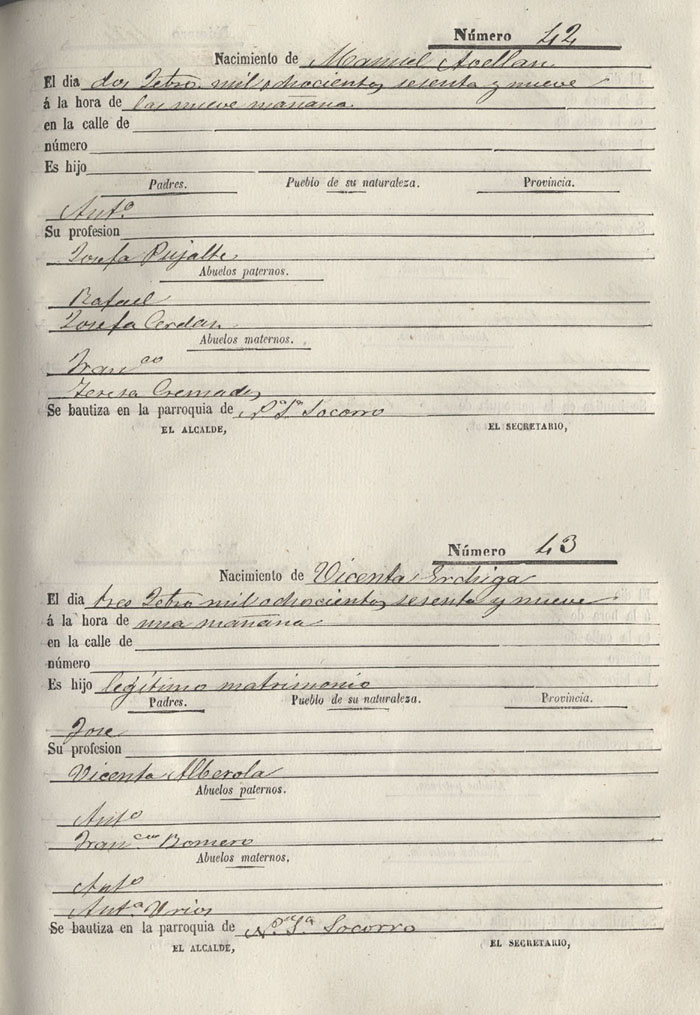 Número 42
Nacimiento de Manuel Avellan
El dia dos Febro. mil ochocientos sesenta y nueve
á la hora de las nueve mañana.
en la calle de
número
Es hijo
Padres. Pueblo de su naturaleza. Provincia.
Anto.
Su profesion
Josefa Pujalte
Abuelos paternos.
Rafael
Josefa Cerdan
Abuelos maternos.
Franco
Teresa Cremades
Se bautiza en la parroquia de Na Sa Socorro
EL ALCALDE, EL SECRETARIO,
Número 43
Nacimiento de Vicenta
El dia tres Febro mil ochocientos sesenta y nueve
á la hora de una mañana
en la calle de
número
Es hijo legítimo matrimonio
Padres. Pueblo de su naturaleza. Provincia.
Jose
Su profesion
Vicenta Alberola
Abuelos paternos.
Anto
Franca Romero
Abuelos maternos.
Anto
Anta Urios
Se bautiza en la parroquia de Na Sa Socorro
EL ALCALDE, EL SECRETARIO,